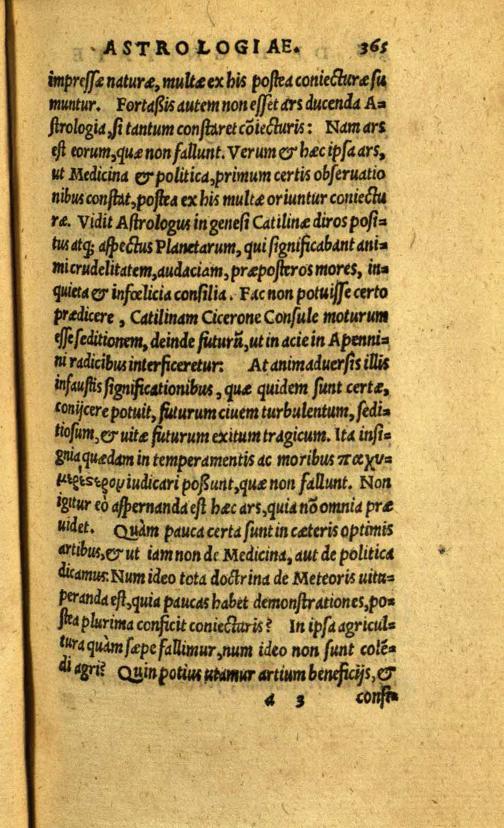 ASTROLOGIAE. 365
impressæ naturæ, multæ ex his postea coniecturæ su
muntur. Fortaßis autem non esset ars ducenda A=
strologia, si tantum constaret cõiecturis: Nam ars
est eorum, quæ non fallunt. Verum & hæc ipsa ars,
ut Medicina & politica, primum certis obseruatio
nibus constat, postea ex his multæ oriuntur coniectu
ræ. Vidit Astrologus in genesi Catilinæ diros posi=
tus atq; aspectus Planetarum, qui significabant ani=
mi crudelitatem, audaciam, præposteros mores, in=
quieta & infœlicia consilia. Fac non potuisse certo
prædicere, Catilinam Cicerone Consule moturum
esse seditionem, deinde futurũ, ut in acie in Apenni=
ni radicibus interficeretur: At animaduersis illis
infaustis significationibus, quæ quidem sunt certæ,
conijcere potuit, futurum ciuem turbulentum, sedi=
tiosum, & uitæ futurum exitum tragicum. Ita insi=
gnia quædam in temperamentis ac moribus παχυ=
μερέστερον iudicari poßunt, quæ non fallunt. Non
igitur eò aspernanda est hæc ars, quia nõ omnia præ
uidet. Quàm pauca certa sunt in cæteris optimis
artibus, & ut iam non de Medicina, aut de politica
dicamus: Num ideo tota doctrina de Meteoris uitu=
peranda est, quia paucas habet demonstrationes, po=
stea plurima conficit coniecturis? In ipsa agricul=
tura quàm sæpe fallimur, num ideo non sunt colẽ=
di agri? Quin potius utamur artium beneficijs, &
a 3 consi=